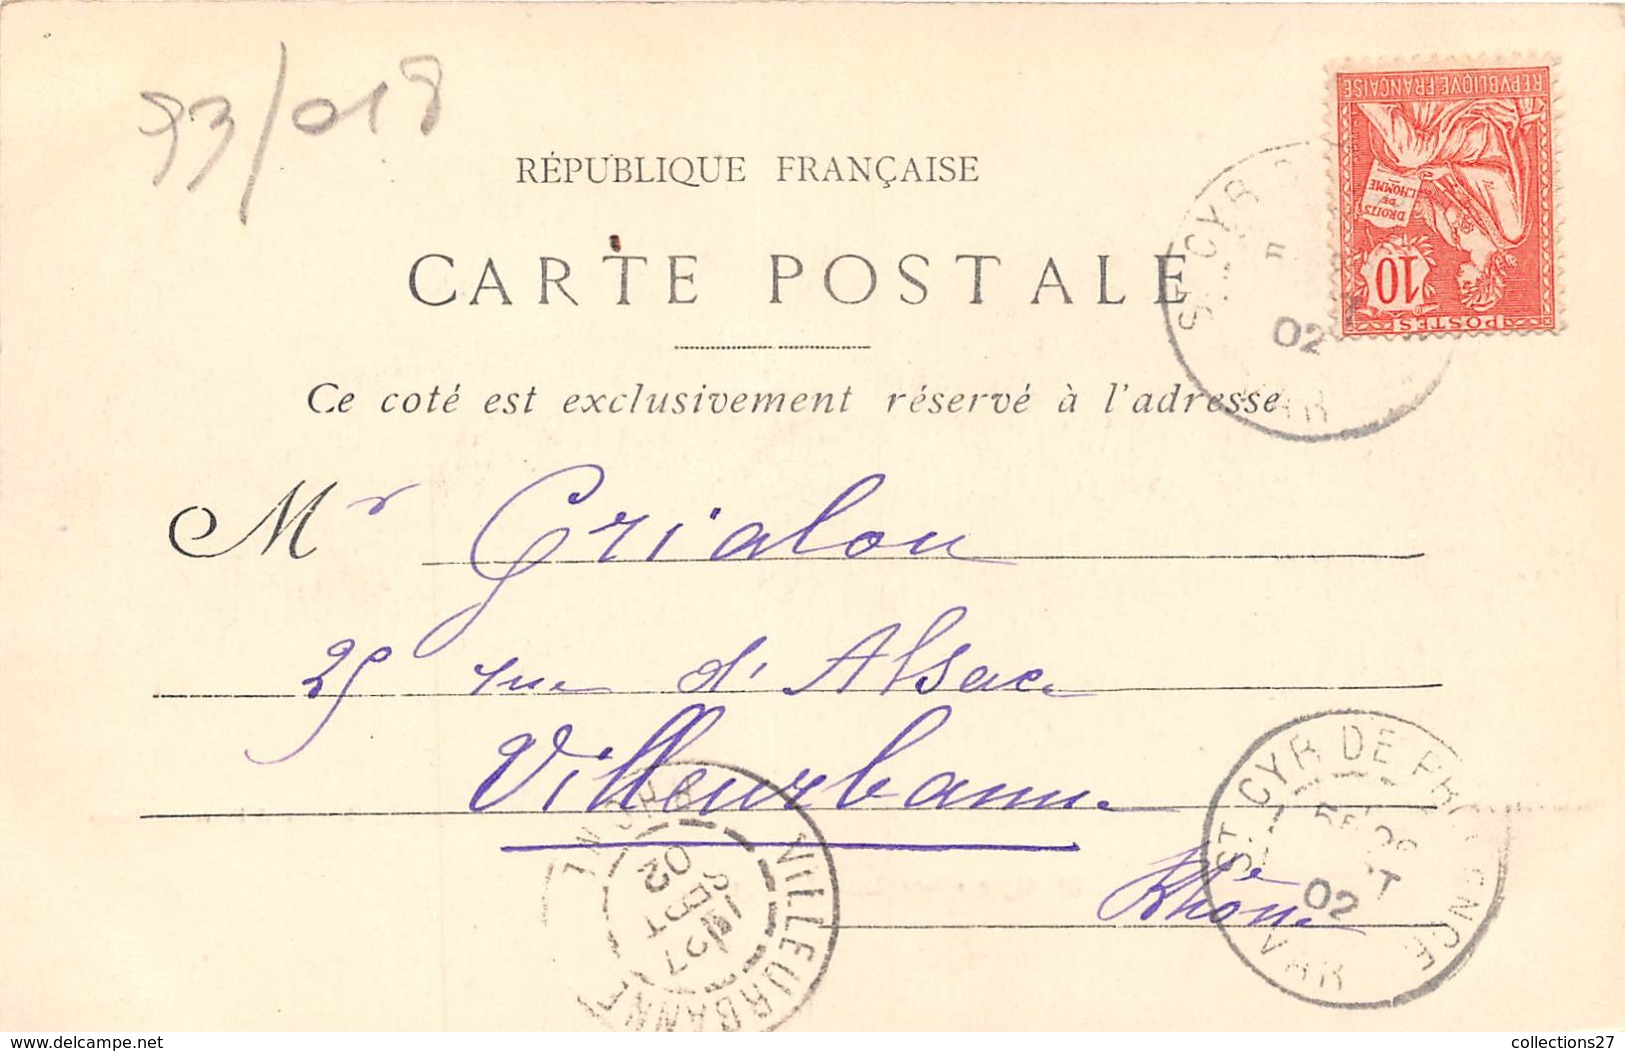 93/018
RÉPUBLIQUE FRANÇAISE
CARTE POSTALE
Ce coté est exclusivement réservé à l'adresse
REPVBLIQVE FRANÇAISE
DROITS DE L'HOMME
10
POSTES
ST CYR
02
VAR
Mr Grialou
25 rue d'Alsace
Villeurbanne
Rhône
VILLEURBANNE
RHONE
SEPT
02
ST CYR DE PROVENCE
02
VAR
www.delcampe.net
collections27